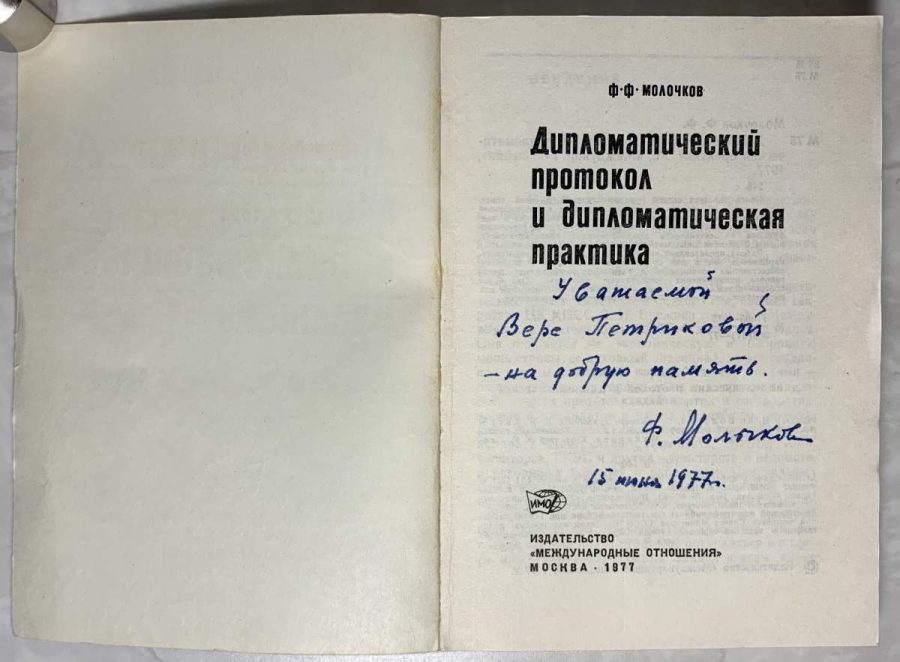 Ф·Ф·МОЛОЧКОВ
Дипломатический
протокол
и дипломатическая
практика
Уважаемой
Вере Петриковой
– на добрую память.
Ф. Молочков
15 июня 1977г.
ИМО
ИЗДАТЕЛЬСТВО
«МЕЖДУНАРОДНЫЕ ОТНОШЕНИЯ»
МОСКВА · 1977